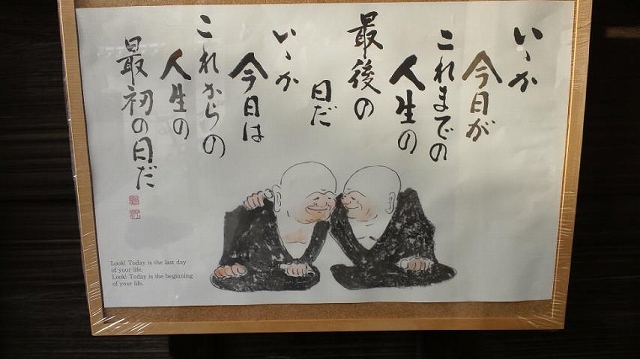 いゝか
今日が
これまでの
人生の
最後の
日だ
いゝか
今日は
これからの
人生の
最初の日だ
Look! Today is the last day
of your life.
Look! Today is the beginning
of your life.